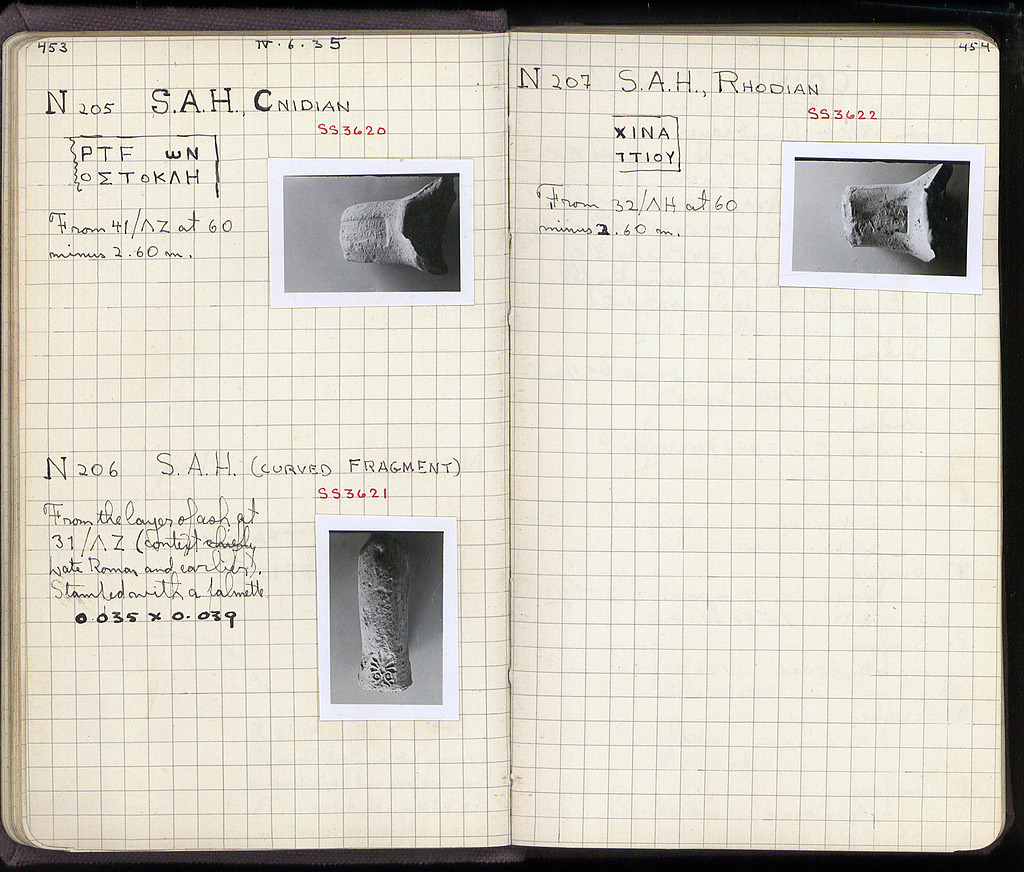 453
IV · 6 · 35
N 205 S.A.H., CNIDIAN
SS3620
ΡΤF ωΝ
ΟΣΤΟΚΛΗ
From 41/ΛΖ at 60
minus 2.60 m.
N 206 S.A.H. (CURVED FRAGMENT)
SS3621
From the layer of ash at
31/ΛΖ (context chiefly
Late Roman and earlier).
Stamped with a palmette
0.035 x 0.039
454
N 207 S.A.H., RHODIAN
SS3622
ΧΙΝΑ
ΤΙΟΥ
From 32/ΛΗ at 60
minus 2.60 m.